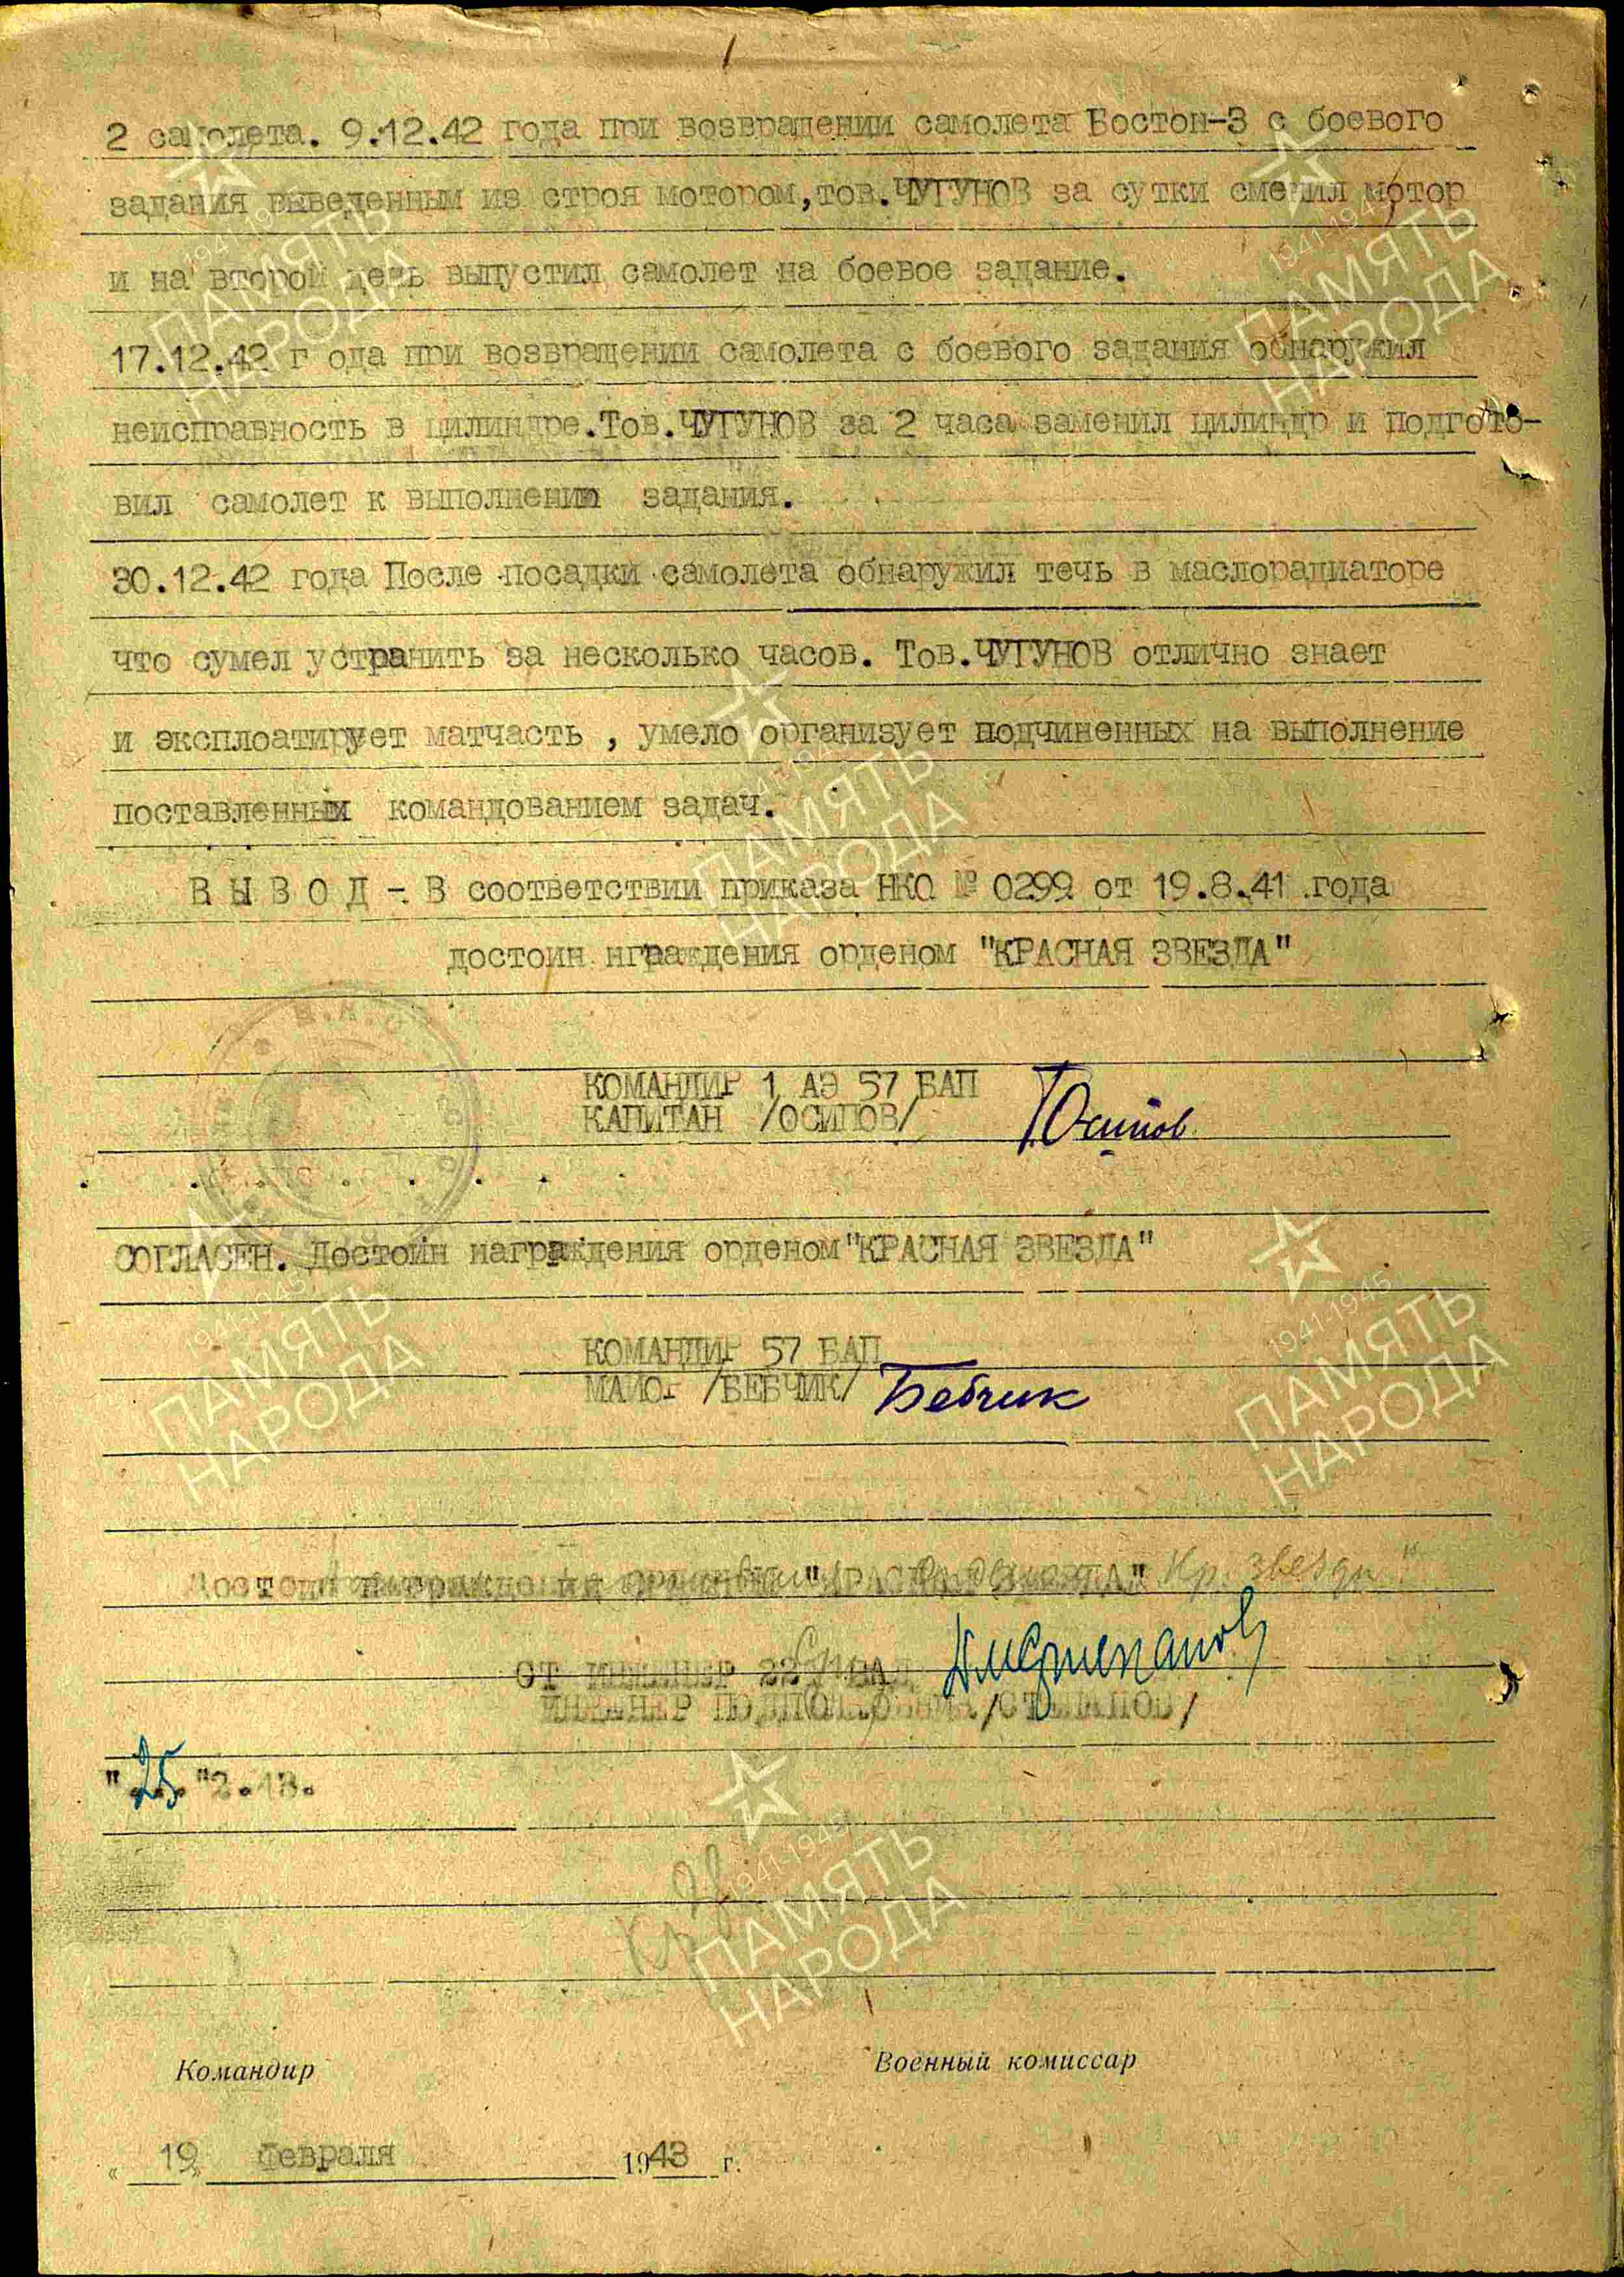 2 самолета. 9.12.42 года при возвращении самолета Бостон-3 с боевого
задания выведенным из строя мотором, тов.ЧУГУНОВ за сутки сменил мотор
и на второй день выпустил самолет на боевое задание.
17.12.42 г ода при возвращении самолета с боевого задания обнаружил
неисправность в цилиндре.Тов.ЧУГУНОВ за 2 часа заменил цилиндр и подгото-
вил самолет к выполнению задания.
30.12.42 года После посадки самолета обнаружил течь в маслорадиаторе
что сумел устранить за несколько часов. Тов.ЧУГУНОВ отлично знает
и эксплоатирует матчасть , умело организует подчиненных на выполнение
поставленных командованием задач.
В Ы В О Д - В соответствии приказа НКО № 0299 от 19.8.41 года
достоин нграждения орденом "КРАСНАЯ ЗВЕЗДА"
КОМАНДИР 1 АЭ 57 БАП
КАПИТАН /ОСИПОВ/ Осипов
СОГЛАСЕН. Достоин награждения орденом "КРАСНАЯ ЗВЕЗДА"
КОМАНДИР 57 БАП
МАЙОР /БЕБЧИК/ Бебчик
Достоин награждения орденом "КРАСНАЯ ЗВЕЗДА" Кр. Звезды"
СТ ИНЖЕНЕР БАД
ИНЖЕНЕР ПОДПОЛКОВНИК /СТЕПАНОВ/
"25"2.43.
Кр Зв
Командир Военный комиссар
« 19 » февраля 1943 г.
1941-1945
ПАМЯТЬ
НАРОДА